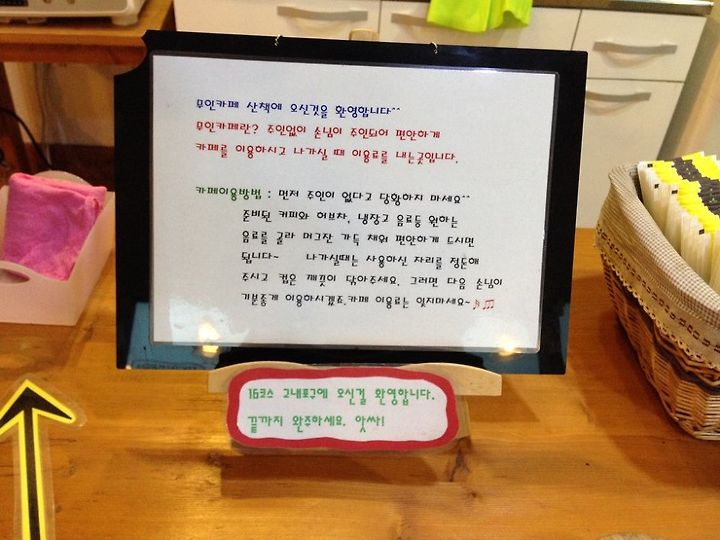 무인카페 산책에 오신것을 환영합니다^^
무인카페란? 주인없이 손님이 주인되어 편안하게
카페를 이용하시고 나가실 때 이용료를 내는곳입니다.
카페이용방법 : 먼저 주인이 없다고 당황하지 마세요^^
준비된 커피와 허브차, 냉장고 음료등 원하는
음료를 골라 머그잔 가득 채워 편안하게 드시면
됩니다~ 나가실때는 사용하신 자리를 정돈해
주시고 컵은 깨끗이 닦아주세요. 그러면 다음 손님이
기분좋게 이용하시겠죠.카페 이용료는 잊지마세요~♪♬
16코스 고내포구에 오신걸 환영합니다.
끝까지 완주하세요. 앗싸!